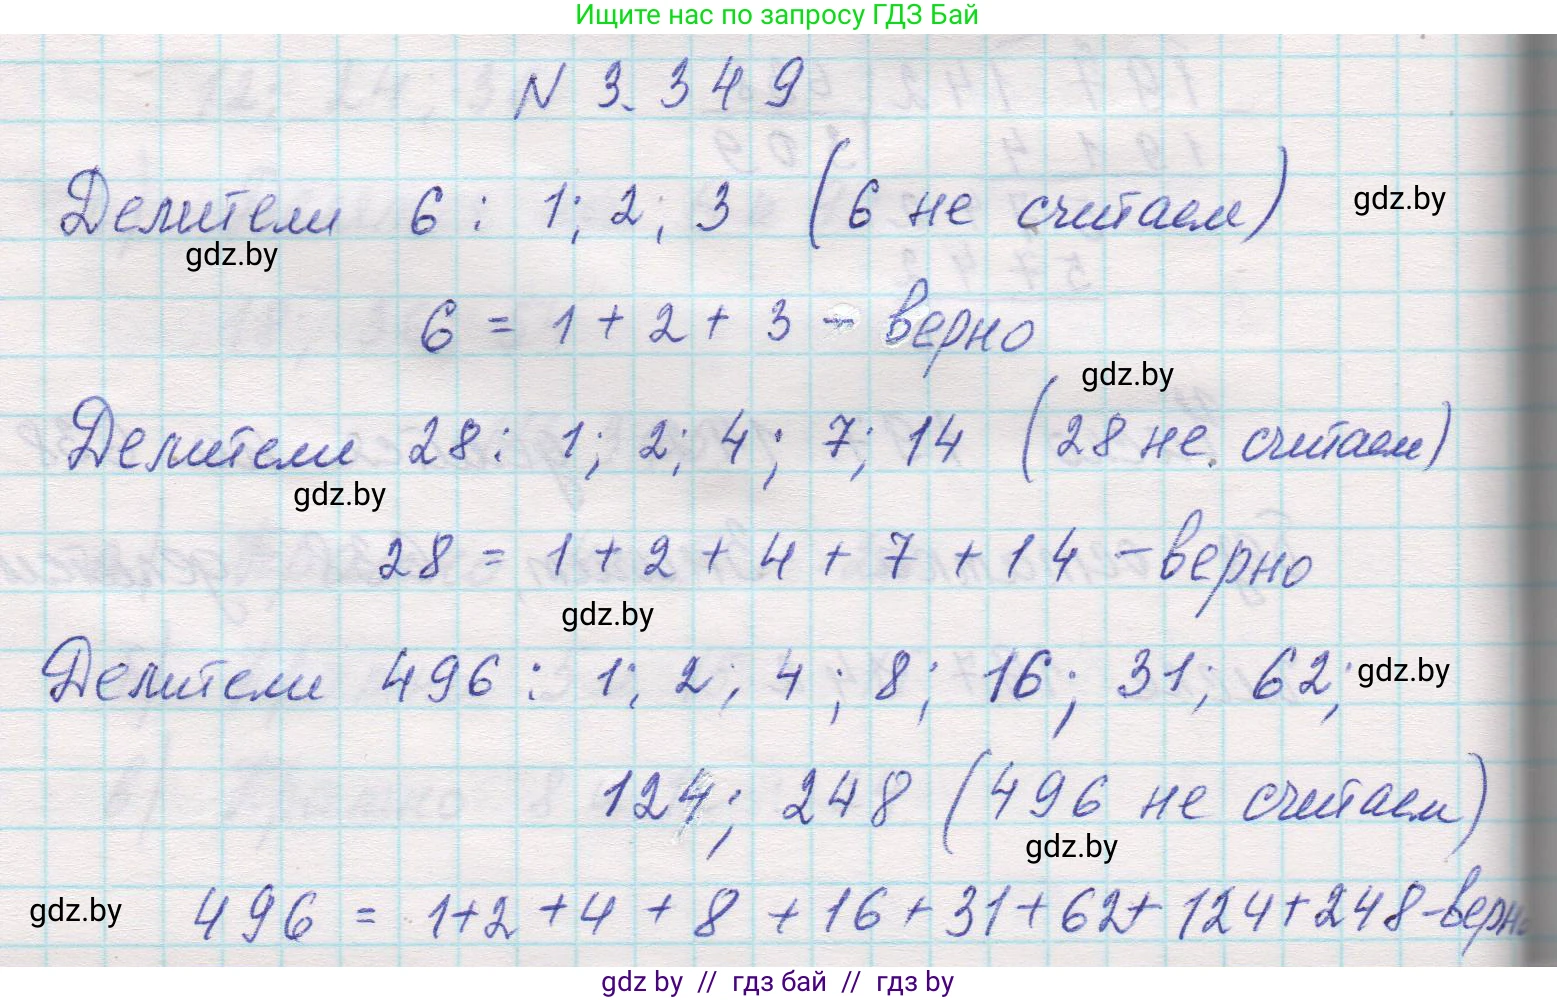 Ищите нас по запросу ГДЗ Бай
N 3.349
Делители 6 : 1; 2; 3 (6 не считаем)
gdz.by
gdz.by
6 = 1 + 2 + 3 - верно
gdz.by
Делители 28: 1; 2; 4; 7; 14 (28 не считаем)
gdz.by
28 = 1 + 2 + 4 + 7 + 14 - верно
gdz.by
Делители 496 : 1; 2; 4; 8; 16; 31; 62;
gdz.by
124; 248 (496 не считаем)
gdz.by
gdz.by
496 = 1+2 + 4 + 8 + 16 + 31 + 62 + 124 + 248 - верно
gdz by // гдз бай // гдз by